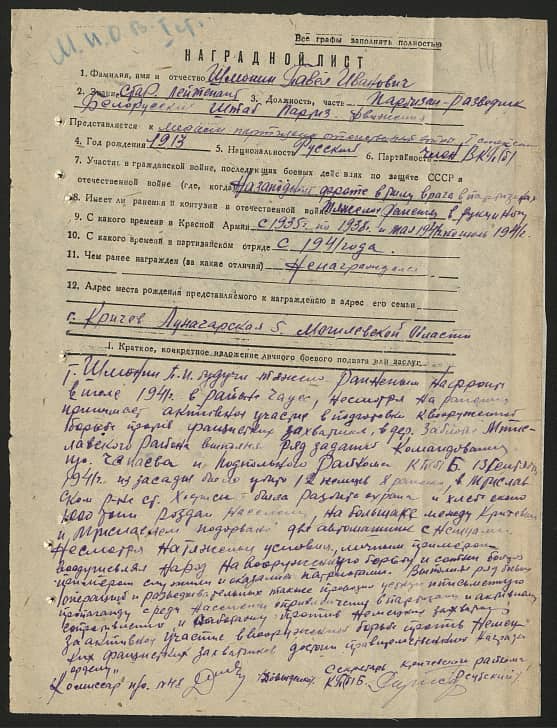 Все графы заполнять полностью
М.И.О.В. I ст.
НАГРАДНОЙ ЛИСТ
1. Фамилия, имя и отчество Шмонин Павел Иванович
2. Звание Стар. Лейтенант 3. Должность, часть Партизан-Разведчик
Белорусский Штаб Партиз. Движения
Представляется к медали партизану отечественной войны I степени
4. Год рождения 1913 5. Национальность Русский 6. Партийность член ВКП(б)
7. Участие в гражданской войне, последующих боевых действиях по защите СССР и
отечественной войне (где, когда) На западном фронте в тылу врага в партизанах
8. Имеет ли ранения и контузии в отечественной войне Тяжело ранен в руку и ногу
9. С какого времени в Красной Армии с 1935г. по 1938г. и мая 1941г. по июль 1941г.
10. С какого времени в партизанском отряде с 1941 года
11. Чем ранее награжден (за какие отличия) Ненаграждался
12. Адрес места рождения представляемого к награждению и адрес его семьи
г. Кричев Луначарская 5. Могилевской области
I. Краткое, конкретное изложение личного боевого подвига или заслуг.
Т. Шмонин П.И. будучи тяжело Раненым на фронте
в июле 1941г. в районе Чаус, несмотря на ранение
принимает активное участие в подготовке к вооруженной
борьбе против фашистских захватчиков, в дер. Мстис-
лавского района выполнял ряд заданий Командования
Чапаева и Подпольного Райкома КП(б)Б. 13 сентября
1941г. из засады было убито 12 немцев Х ранено, в Мстислав
ском р-не ст. Ходосы была разбита охрана и хлеб около
1000 тонн роздан населению, на большаке между Кричевом
и Мстиславлем подорвано две автомашины с Немцами.
Несмотря на тяжелые условия, личным примером
воодушевлял Народ на Вооруженную борьбу и своим боевым
примером служил и оказался патриотом. Выполнял ряд боевых
операций и разведывательных также проводил устную и письменную
пропаганду среди Населения о привлечении в партизаны и активному
сопротивлению и Саботажу против Немецких захватчиков
За активное участие в вооруженной борьбе против Немец-
ких фашистских захватчиков достоин правительственной награды
"ордену"
Комиссар п/о. №48 Секретарь Кричевского райкома
КП(б)Б.